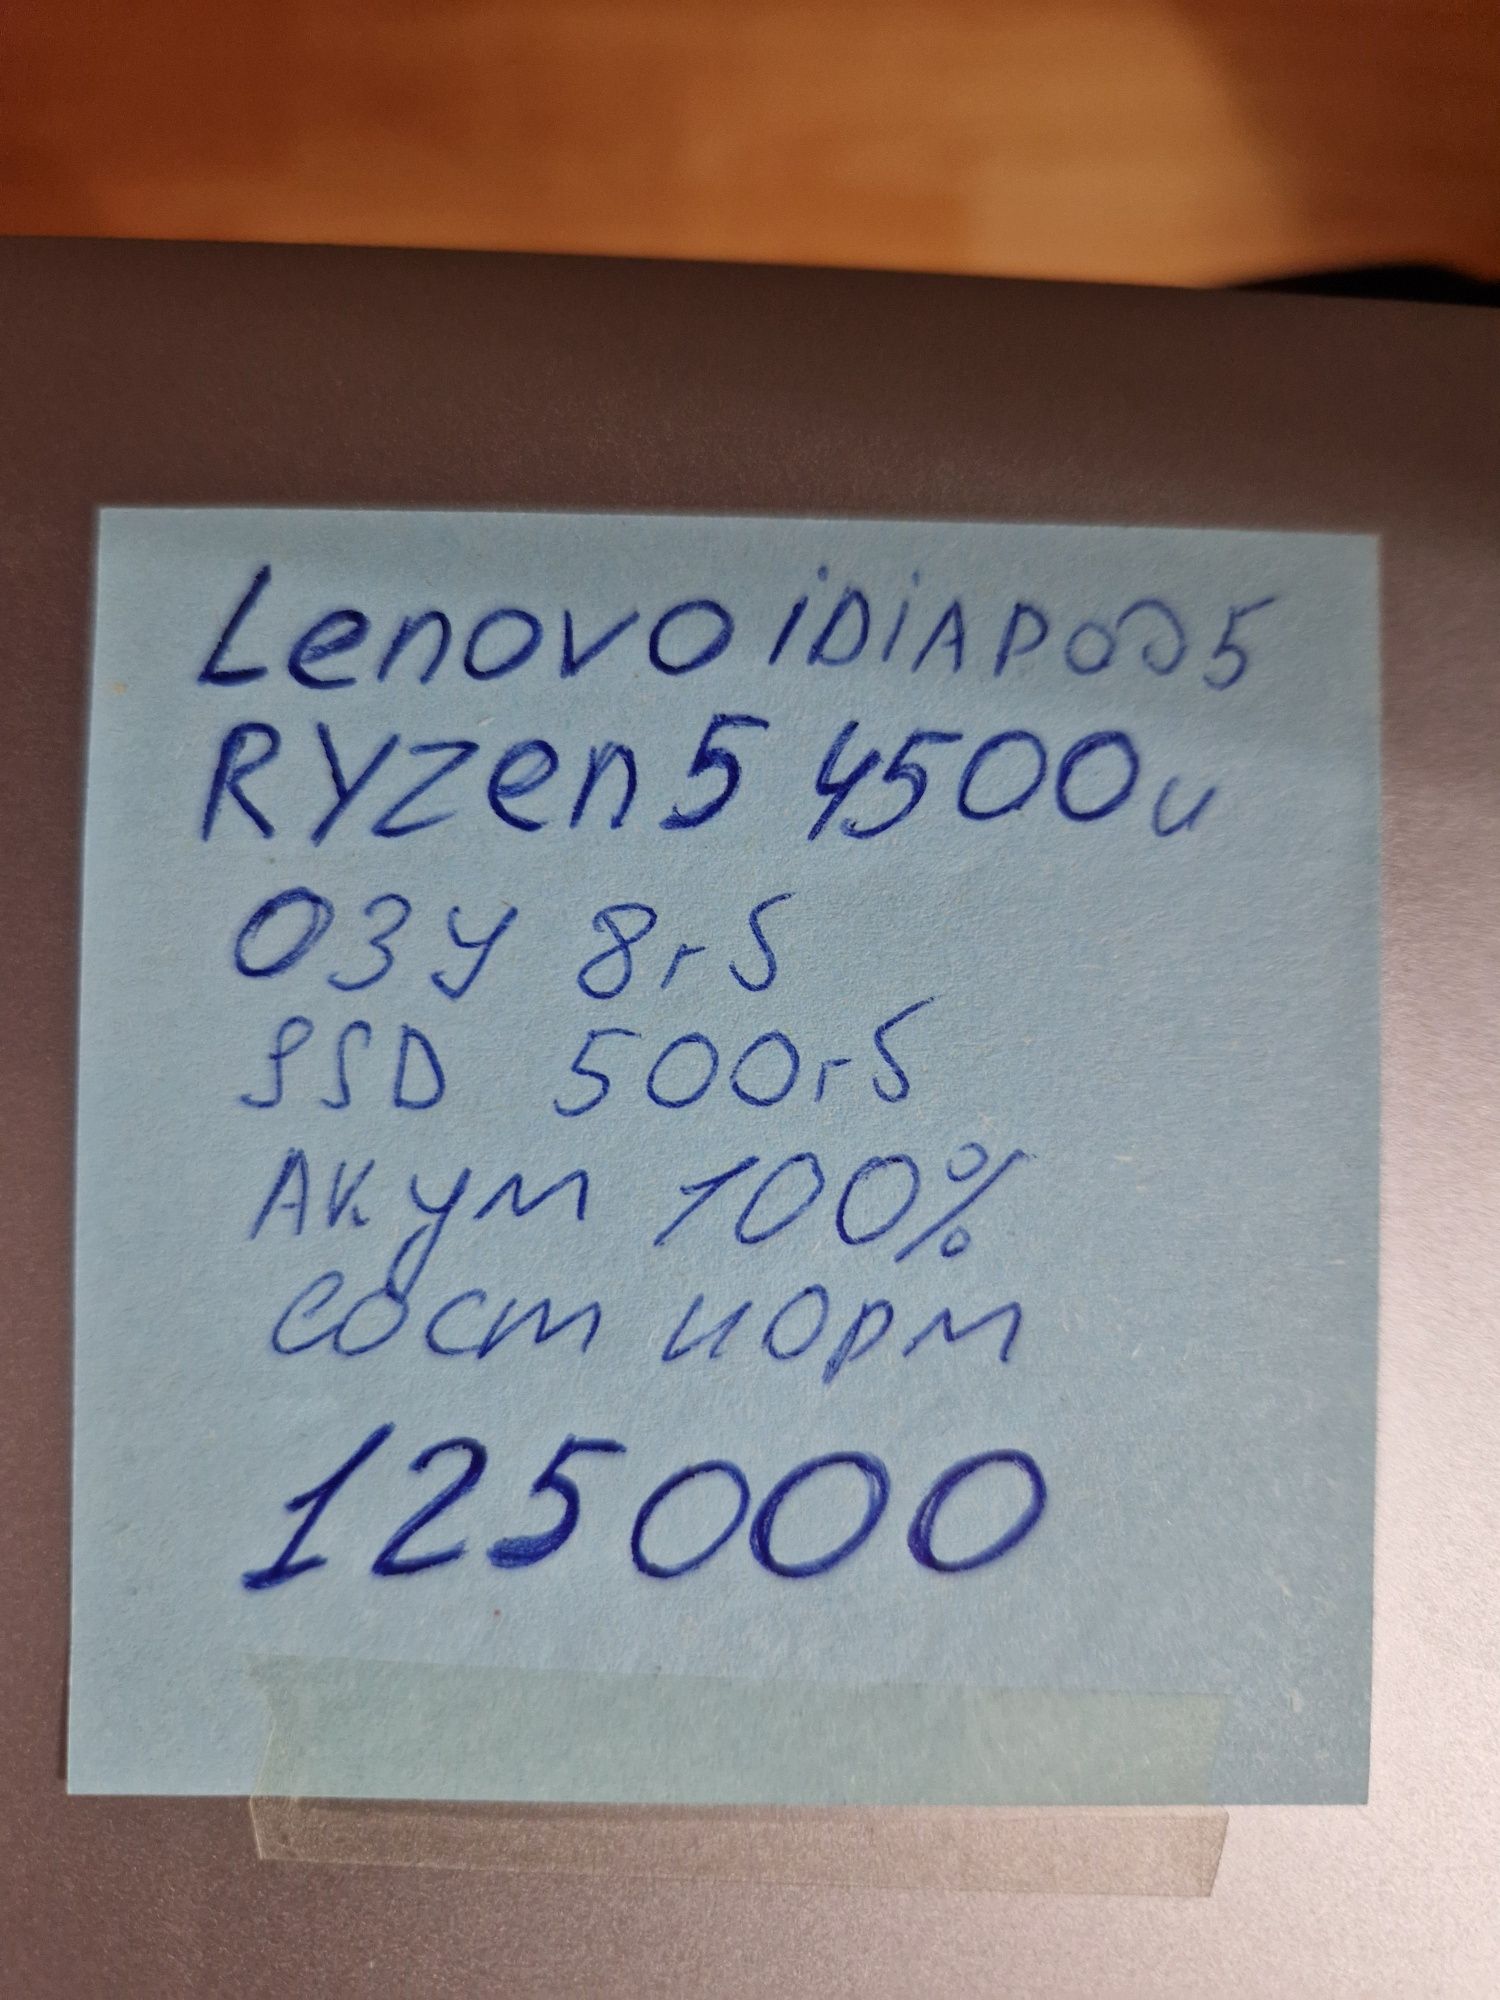 Lenovo iDiAPOD5
RYZen 5 4500u
ОЗУ 8гб
SSD 500гб
Акум 100%
Сост норм
125000